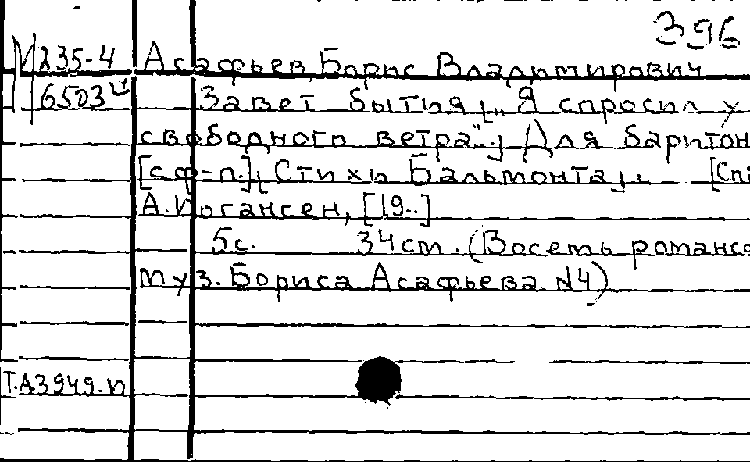 396
М 235-4 Асафьев, Борис Владимирович
6503 Завет бытия [„Я спросил у
свободного ветра"...] Для баритон
[с ф-п.] [Стихи Бальмонта].
А. Иогансен, [19..]
5с. 34см. (Восемь романсо
муз. Бориса Асафьева. №4)
Т.А3949.п